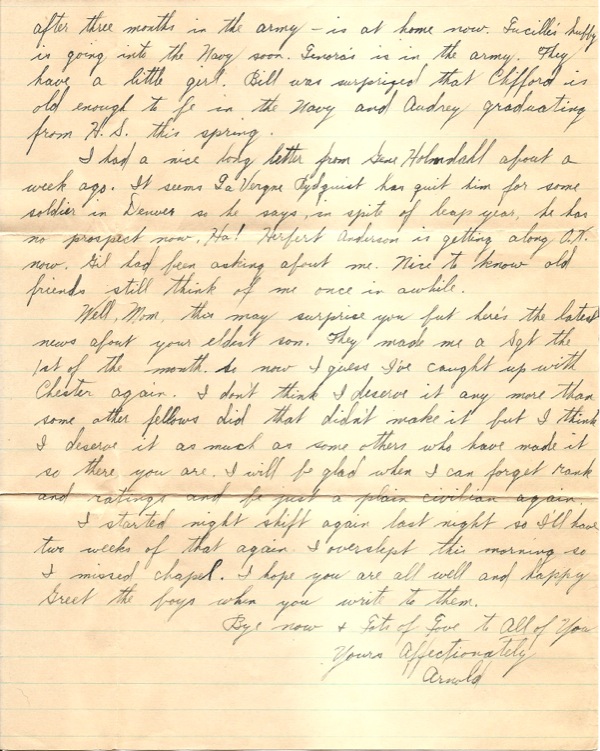 after three months in the army – is at home now. Lucille's hubby
is going into the Navy soon. Lenora's is in the army. They
have a little girl. Bill was surprized that Clifford is
old enough to be in the Navy and Audrey graduating
from H.S. this spring.
I had a nice long letter from Gene Holmdahl about a
week ago. It seems LaVergne Rydquist has quit him for some
soldier in Denver so he says, in spite of leap year, he has
no prospect now, Ha! Herbert Anderson is getting along O.K.
now. Gil had been asking about me. Nice to know old
friends still think of me once in awhile.
Well, Mom, this may surprise you but here's the latest
news about your eldest son. They made me a Sgt the
1st of the month. So now I guess I've caught up with
Chester again. I don't think I deserve it any more than
some other fellows did that didn't make it but I think
I deserve it as much as some others who have made it
so there you are. I will be glad when I can forget rank
and ratings and be just a plain civilian again.
I started night shift again last night so I'll have
two weeks of that again. I overslept this morning so
I missed chapel. I hope you are all well and happy
Greet the boys when you write to them.
Bye now & Lots of Love to All of You
Yours Affectionately
Arnold